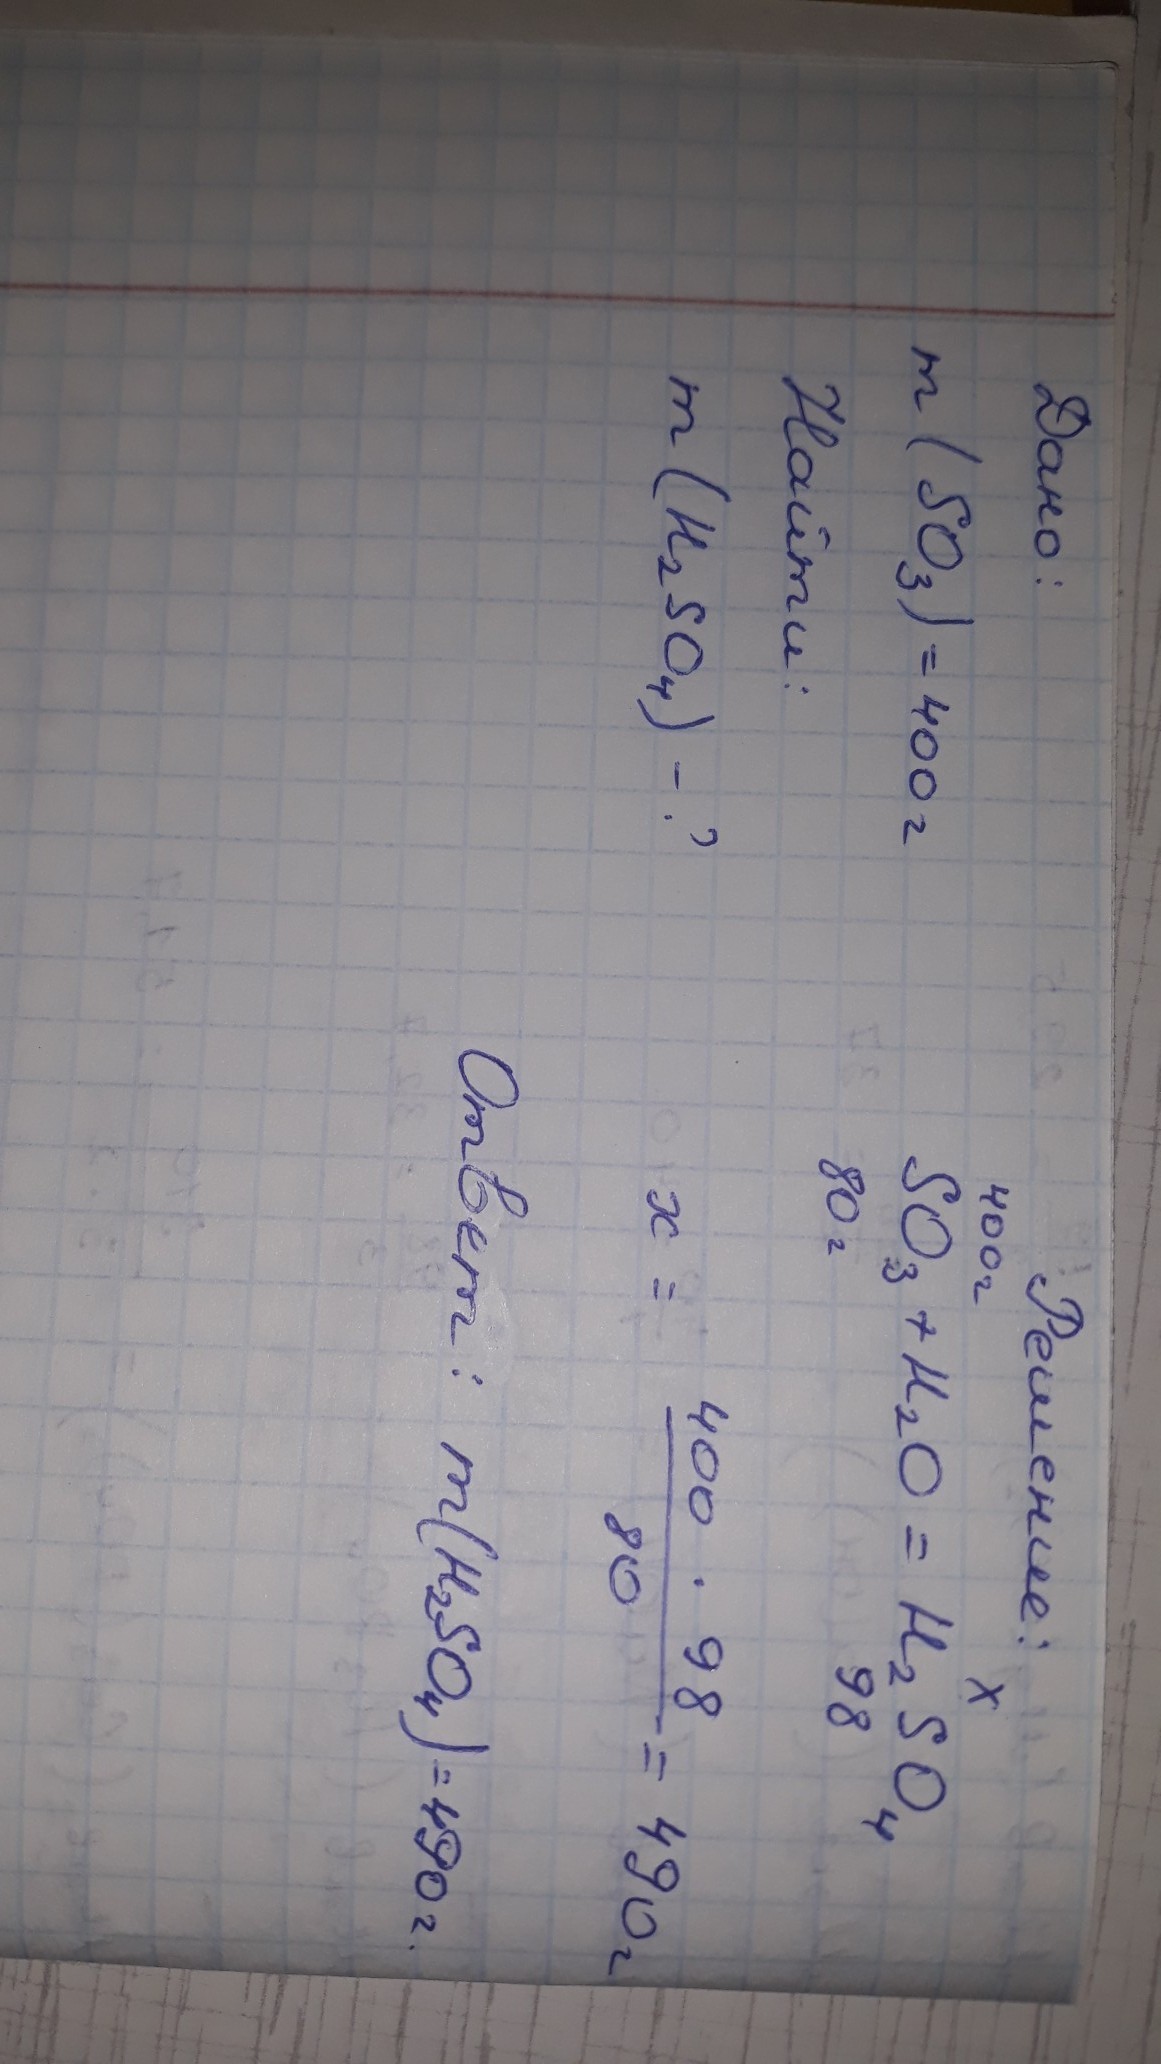 Дано:
m (SO₃) = 400 г
Найти:
m (H₂SO₄) - ?
Решение:
400 г х
SO₃ + H₂O = H₂SO₄
80 г 98
x = 400 · 98 / 80 = 490 г
Ответ: m(H₂SO₄) = 490 г.